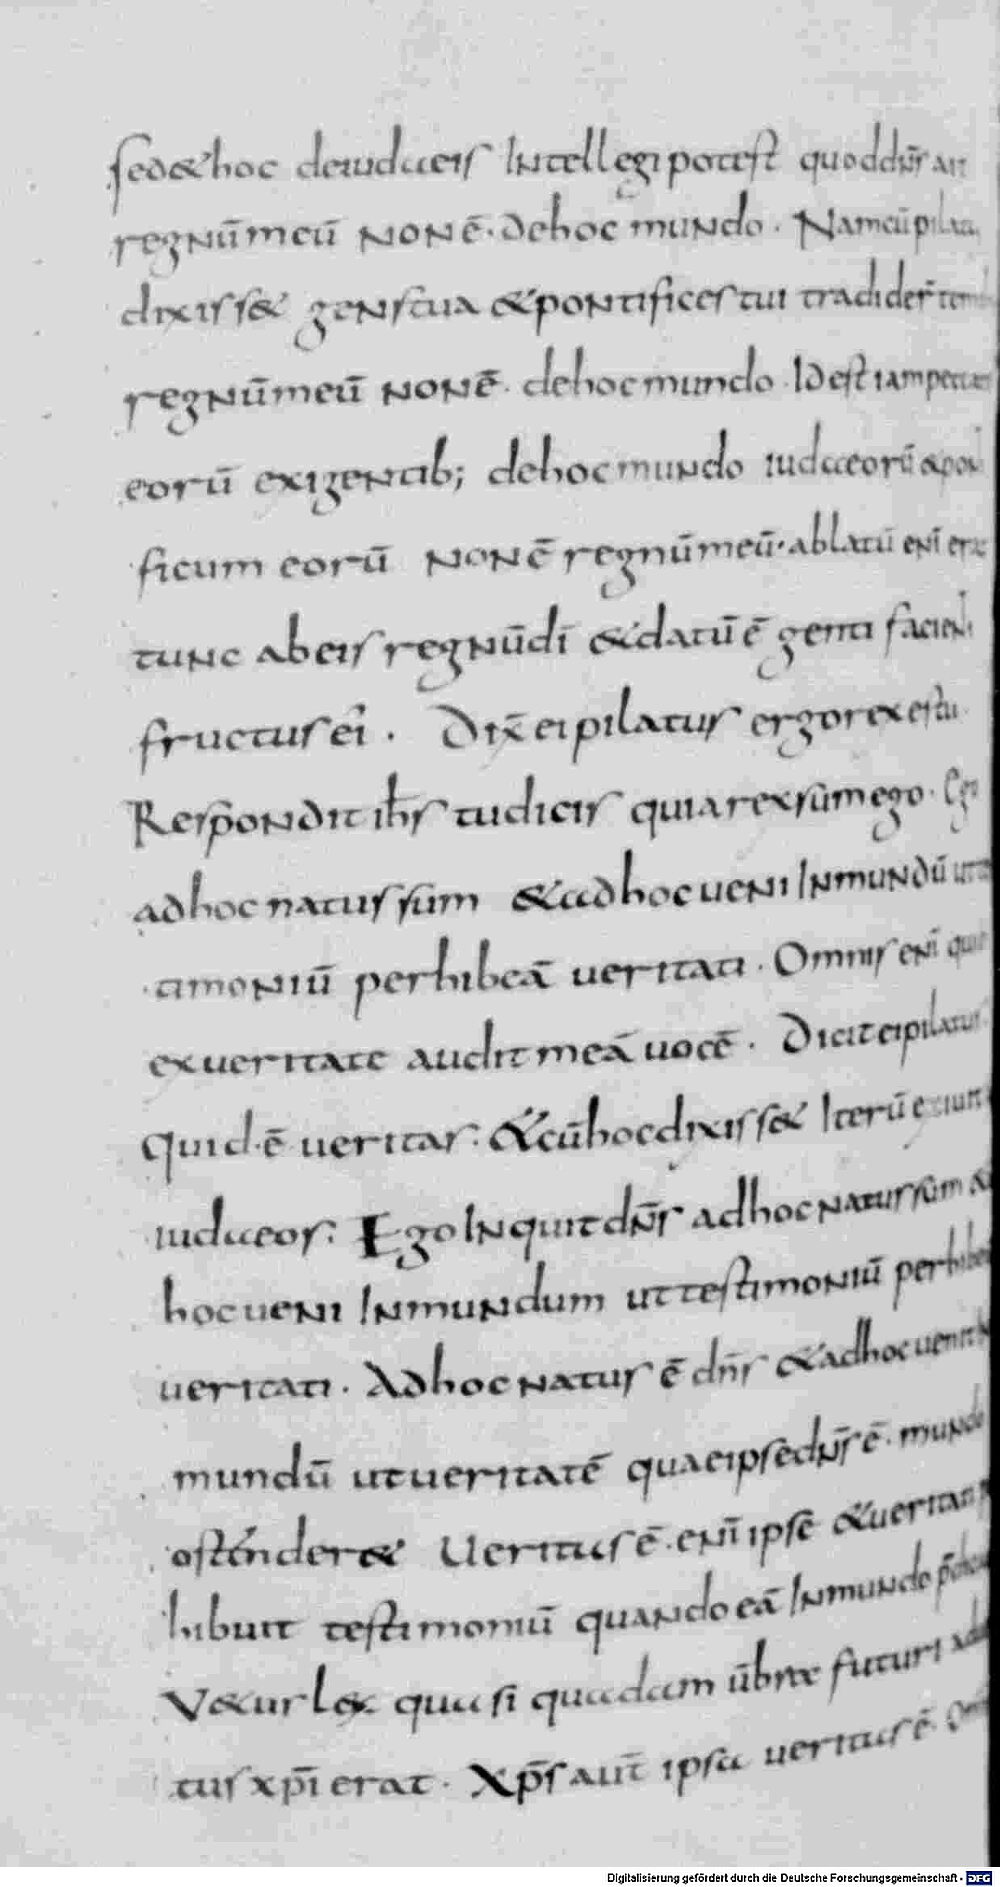 sed & hoc deiudaeis Intellegi potest quod dn̄s ait
regnū meū non ē· de hoc mundo · Nam cū pilatus
dixiss& gens tua & pontifices tui tradider̄ te mihi
regnū meū non ē· de hoc mundo · Id est iam peccatis
eorū exigentib; de hoc mundo iudaeorū & pon
ficum eorū non ē regnū meū· ablatū enī erat
tunc ab eis regnū dī & datū ē genti facienti
fructus ei · Dix̄ ei pilatus ergo rex es tu
Respondit ih̄s tu dicis quia rex sum ego · Ego
ad hoc natus sum & ad hoc ueni In mundū ut
timoniū perhibeā ueritati · Omnis enī qui
ex ueritate audit meā uocē · Dicit ei pilatus
Quid · ē ueritas : & cū hoc dixiss& Iterū exiuit
iudaeos : Ego Inquit dn̄s ad hoc natus sum &
hoc ueni In mundum ut testimoniū perhibe
ueritati · Ad hoc natus ē dn̄s & ad hoc uenit
mundū ut ueritatē quae ipse dn̄s ē · mundo
ostender& Ueritas ē · enī ipse & ueritati
hibuit testimoniū quando eā In mundo
V&us lex quasi quaedam ūbrae futuri
tus xp̄i erat · Xp̄s aut̄ ipsa ueritas ē·
Digitalisierung gefördert durch die Deutsche Forschungsgemeinschaft - DFG